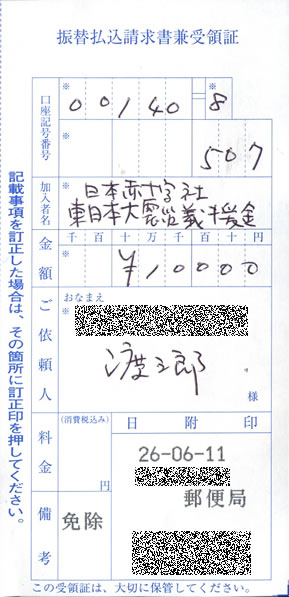 振替払込請求書兼受領証
口座記号番号
※
00140
※
8
507
加入者名
※
日本赤十字社
東日本大震災義援金
金額
千百十万千百十円
※
¥10000
ご依頼人
おなまえ
※
様
料金
(消費税込み)
円
日附印
26-06-11
郵便局
備考
免除
記載事項を訂正した場合は、その箇所に訂正印を押してください。
この受領証は、大切に保管してください。